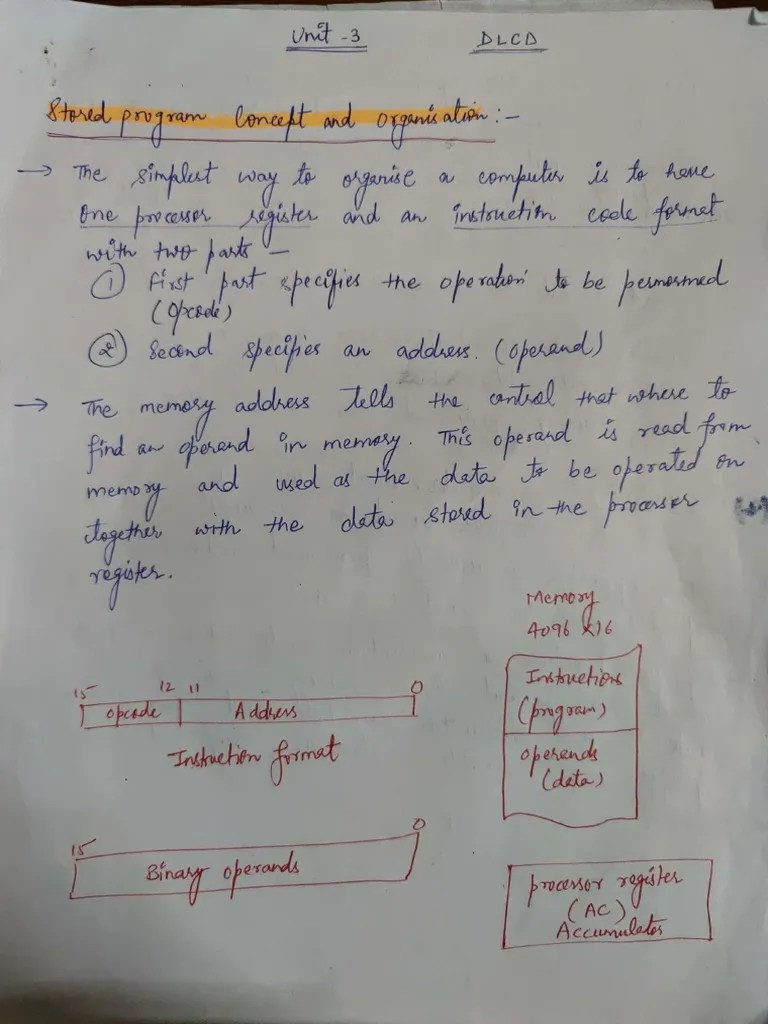 Unit - 3 DLCD
Stored program Concept and organisation :-
→ The simplest way to organise a computer is to have
one processor register and an instruction code format
with two parts —
① First part specifies the operation to be permormed
(Opcode)
② Second specifies an address. (operand)
→ The memory address tells the control that where to
find an operand in memory. This operand is read from
memory and used as the data to be operated on
together with the data stored in the processor
register.
Memory
4096 x 16
Instructions
(program)
operands
(data)
15 12 11 0
opcode Address
Instruction format
15 0
Binary operands
processor register
(AC)
Accumulator